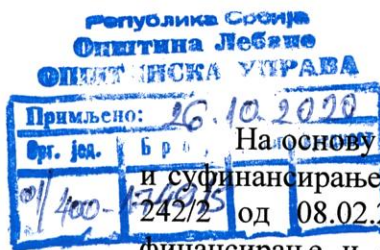 Република Србија
Општина Лебане
ОПШТИНСКА УПРАВА
Примљено: 26.10.2020
Орг. јед. Број
01 400-
На основу
и суфинансирање
242/2 од 08.02.2
финансирање и